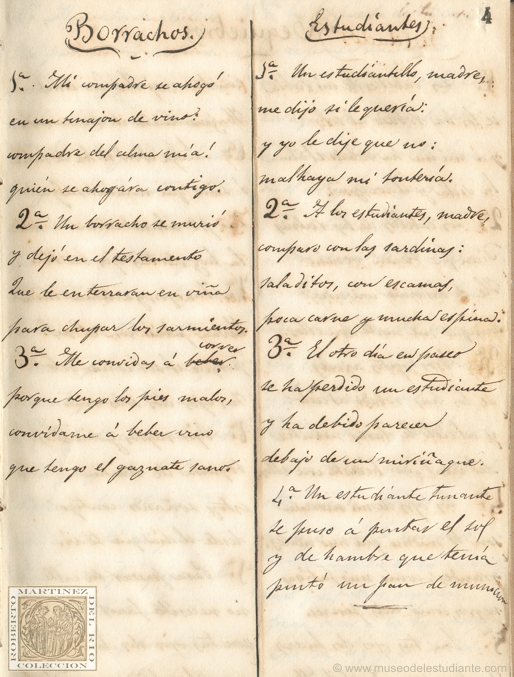 4
Borrachos.
1ª. Mi compadre se ahogó
en un tinajon de vino:
compadre del alma mía!
quién se ahogára contigo.
2ª. Un borracho se murió
y dejó en el testamento
Que le enterraran en viña
para chupar los sarmientos.
correr
3ª. Me convidas á beber.
porque tengo los pies malos,
convídame á beber vino
que tengo el gaznate sano.
Estudiantes.
1ª. Un estudiantillo, madre,
me dijo si le quería:
y yo le dije que no:
malhaya mi tontería.
2ª. A los estudiantes, madre,
comparo con las sardinas:
saladitos, con escamas,
poca carne y mucha espina.
3ª. El otro día en paseo
se ha perdido un estudiante
y ha debido parecer
debajo de un miriñaque.
4ª Un estudiante tunante
se puso á pintar el sol
y de hambre que tenía
pintó un pan de munición
ROBERTO MARTINEZ DEL RIO
COLECCION
© www.museodelestudiante.com